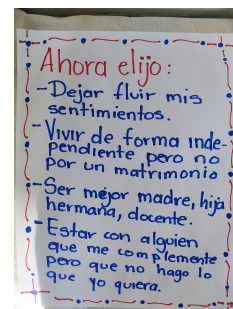 Ahora elijo:
-Dejar fluir mis
sentimientos.
-Vivir de forma inde-
pendiente pero no
por un matrimonio
-Ser mejor madre, hija
hermana, docente.
-Estar con alguien
que me complemente
pero que no hago lo
que yo quiera.